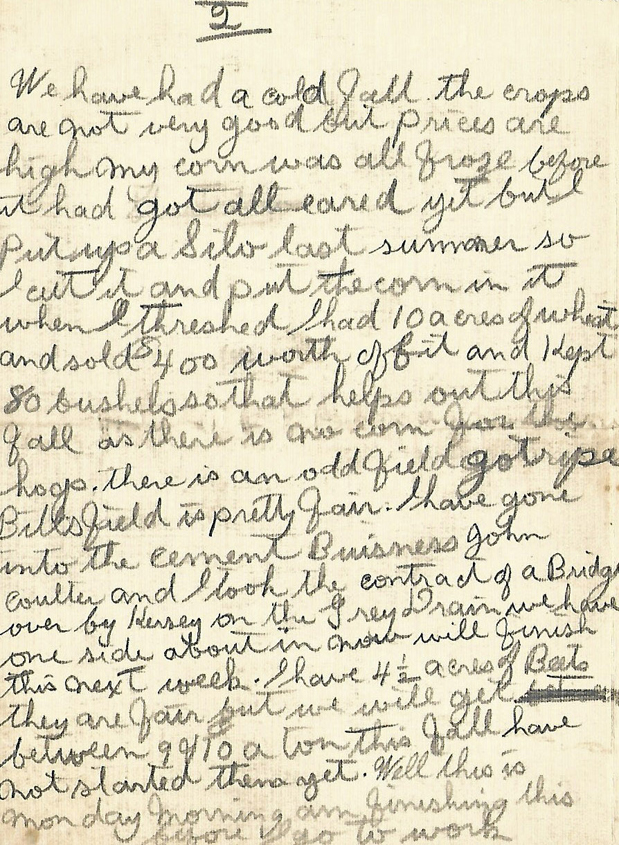 2
We have had a cold fall the crops
are not very good but prices are
high my corn was all froze before
it had got all eared yet but I
Put up a Silo last summer so
I cut it and put the corn in it
when I threshed I had 10 acres of wheat
and sold $400 worth of it and Kept
80 bushels so that helps out this
fall as there is no corn for the
hogs. there is an odd field got ripe
Bills field is pretty fair. I have gone
into the cement Buisness John
Coulter and I took the contract of a Bridge
over by Kersey on the Grey Drain we have
one side about in now will finish
this next week. I have 4 1/2 acres of Beets
they are fair but we will get
between 9 & 10 a ton this fall have
not started them yet. Well this is
monday morning am finishing this
before I go to work